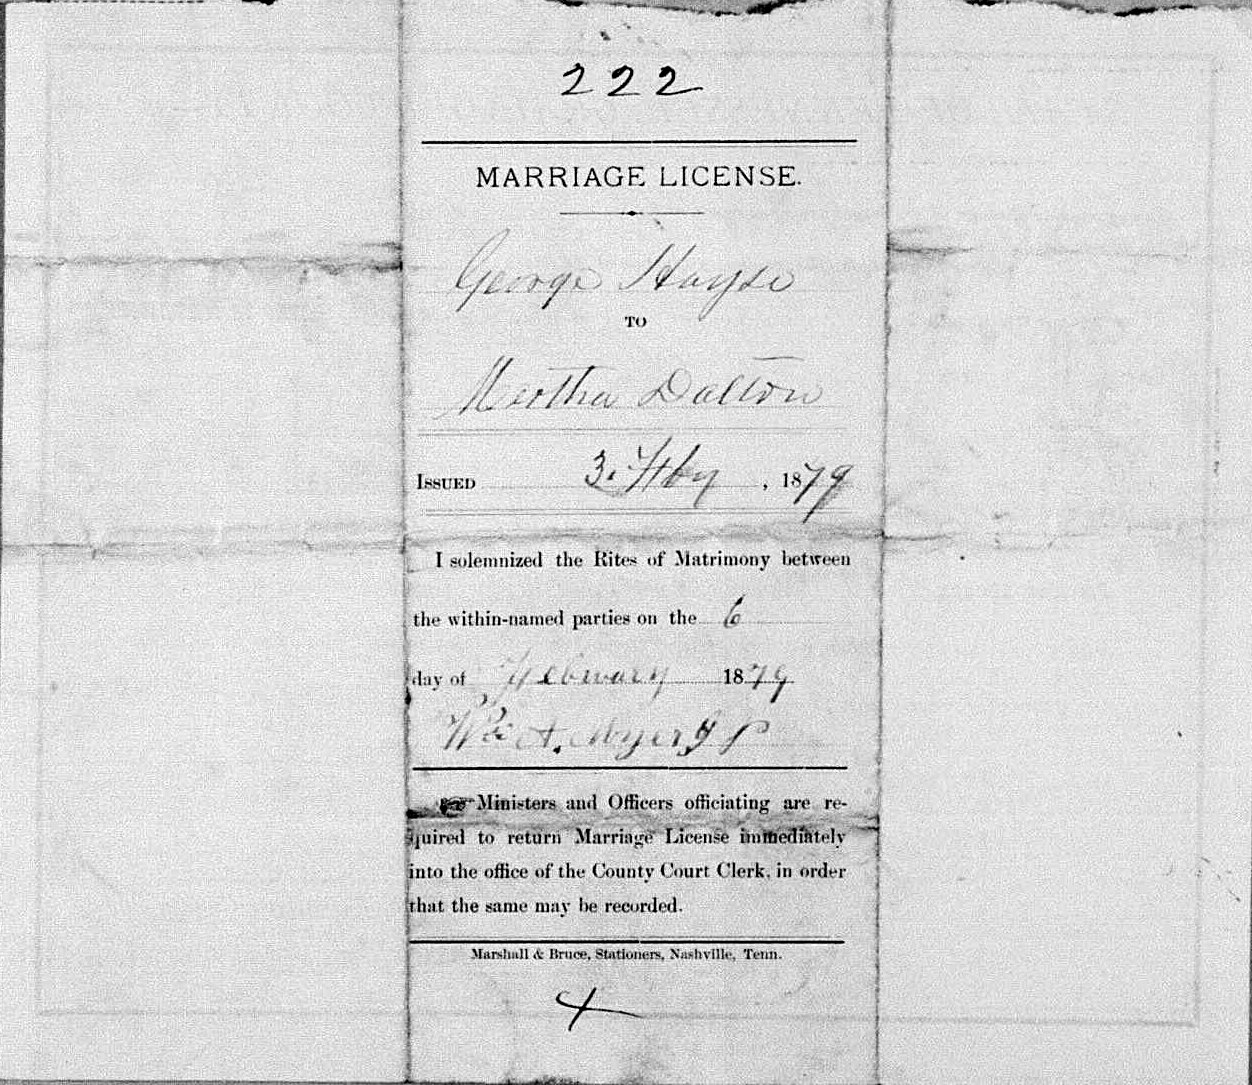 222
MARRIAGE LICENSE.
George Hayse
TO
Mertha Dalton
ISSUED 3. Feby, 1879
I solemnized the Rites of Matrimony between
the within-named parties on the 6
day of February 1879
Wm A. Myers J P
Ministers and Officers officiating are re-
quired to return Marriage License immediately
into the office of the County Court Clerk, in order
that the same may be recorded.
Marshall & Bruce, Stationers, Nashville, Tenn.